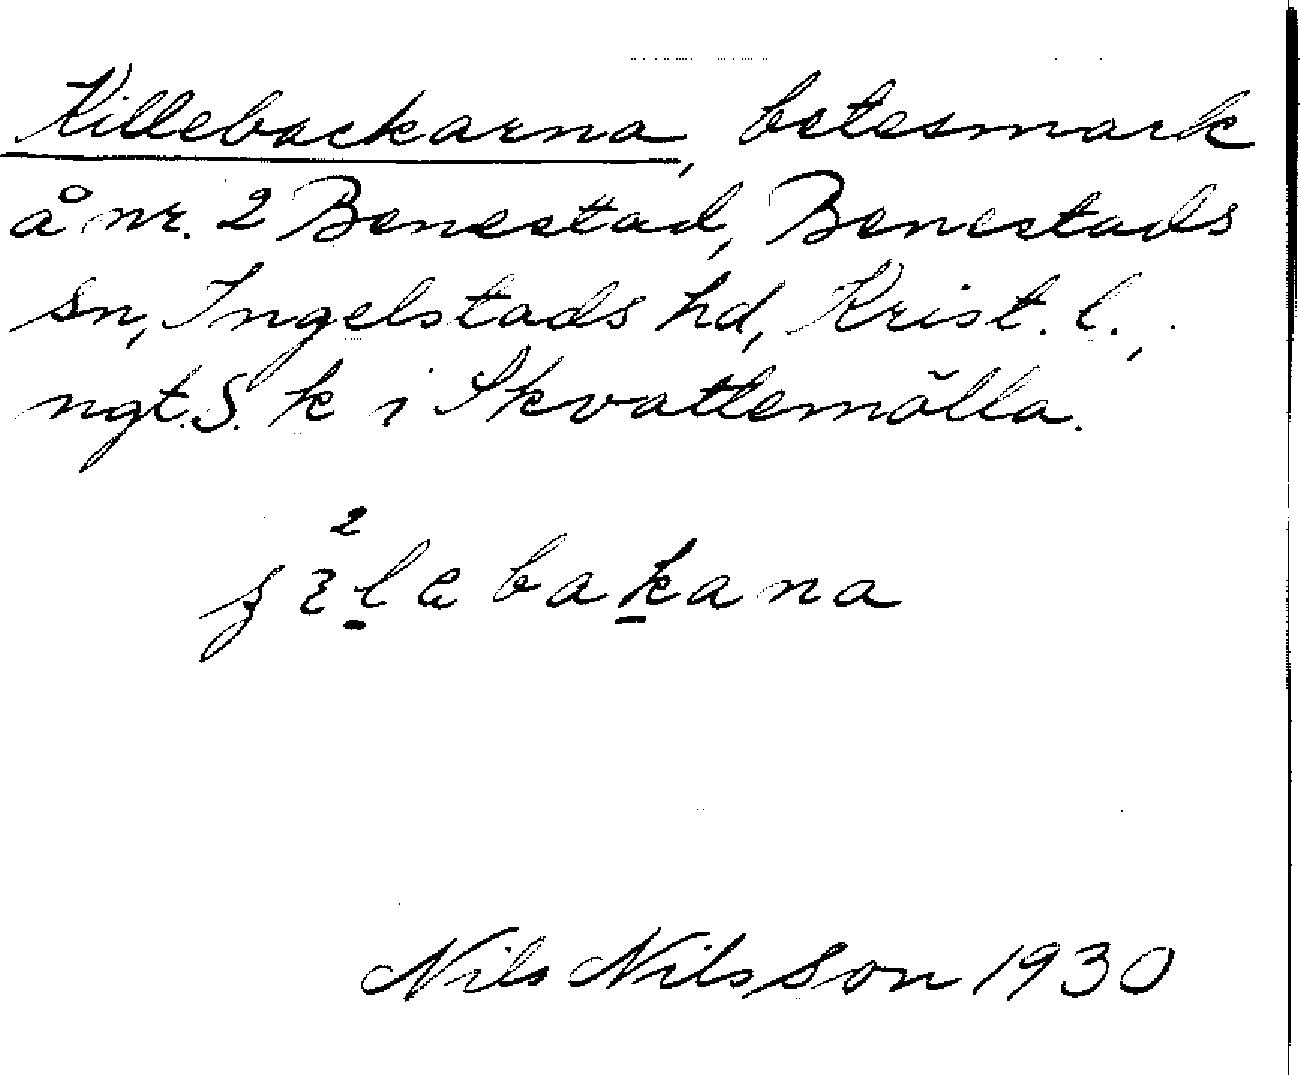 Killebackarna, betesmark
å nr. 2 Benestad, Benestads
sn, Ingelstads hd, Krist. l.,
ngt. S. k i Skvattemölla.
Nils Nilsson 1930